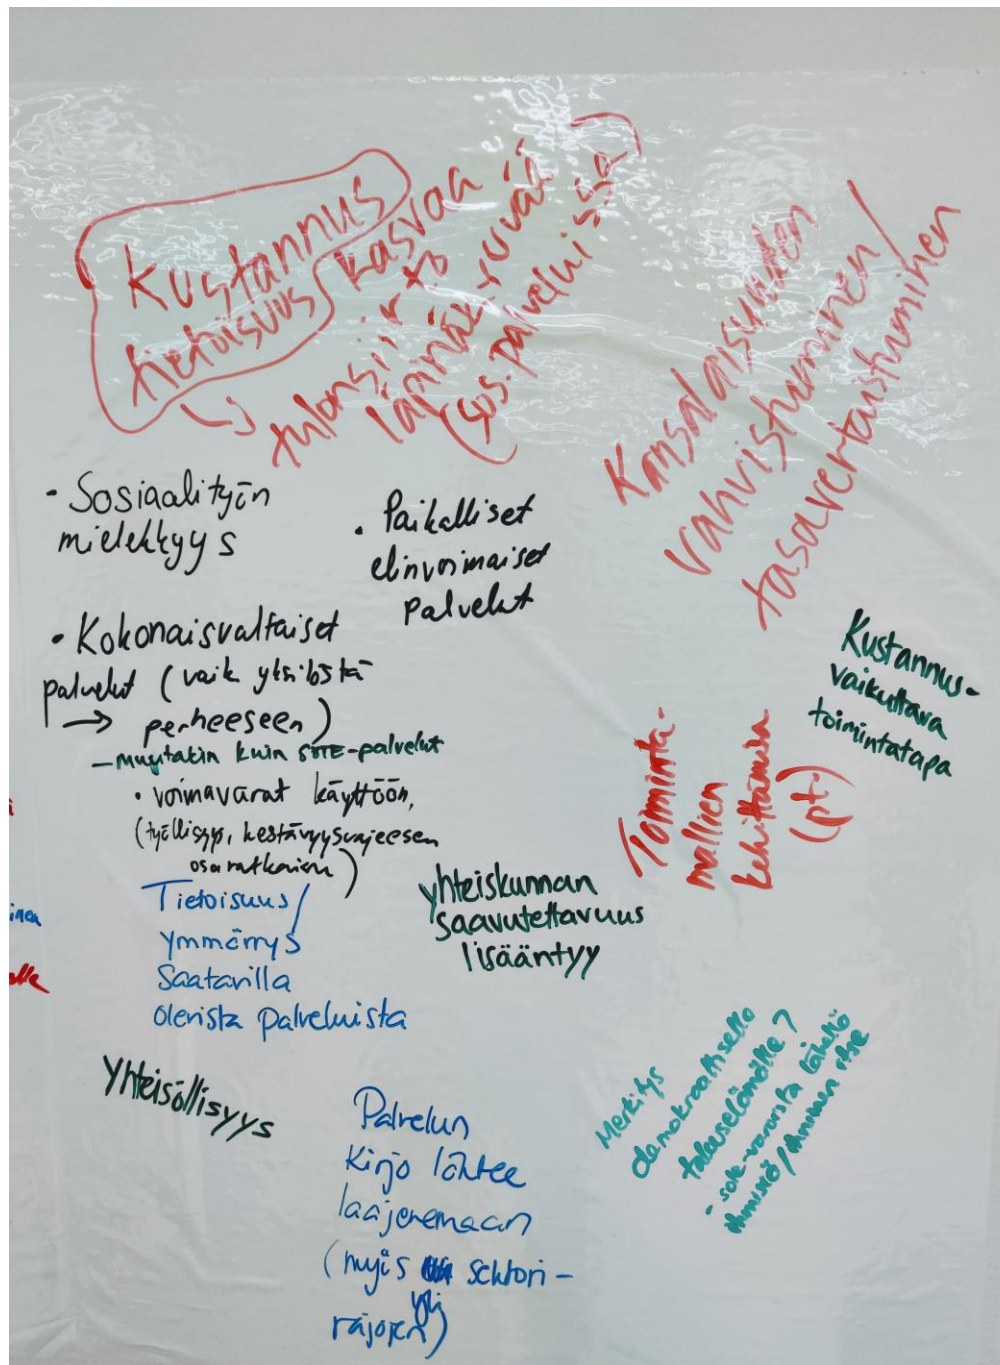 Kustannus
tietoisuus kasvaa
↳ tulonsiirto
läpinäkyvää
(sos.palveluissa)
Kansalaisuuden
vahvistuminen/
tasavertaistuminen
• Sosiaalityön
mielekkyys
• Paikalliset
elinvoimaiset
palvelut
• Kokonaisvaltaiset
palvelut (vaik yksilöstä
→ perheeseen)
– muutakin kuin SOTE-palvelut
• voimavarat käyttöön,
(työllisyys, kestävyysvajeeseen
osaratkaisu)
Kustannus-
vaikuttava
toimintatapa
Toiminta-
mallien
kehittämistä
(pt)
Tietoisuus/
ymmärrys
Saatavilla
olevista palveluista
yhteiskunnan
saavutettavuus
lisääntyy
inen
elle
Yhteisöllisyys
Palvelun
Kirjo lähtee
laajenemaan
(myös sektori-
rajojen yli)
Merkitys
demokraattiselle
talouselämälle?
- sote-varoista lähellä
ihmistä/ihminen itse